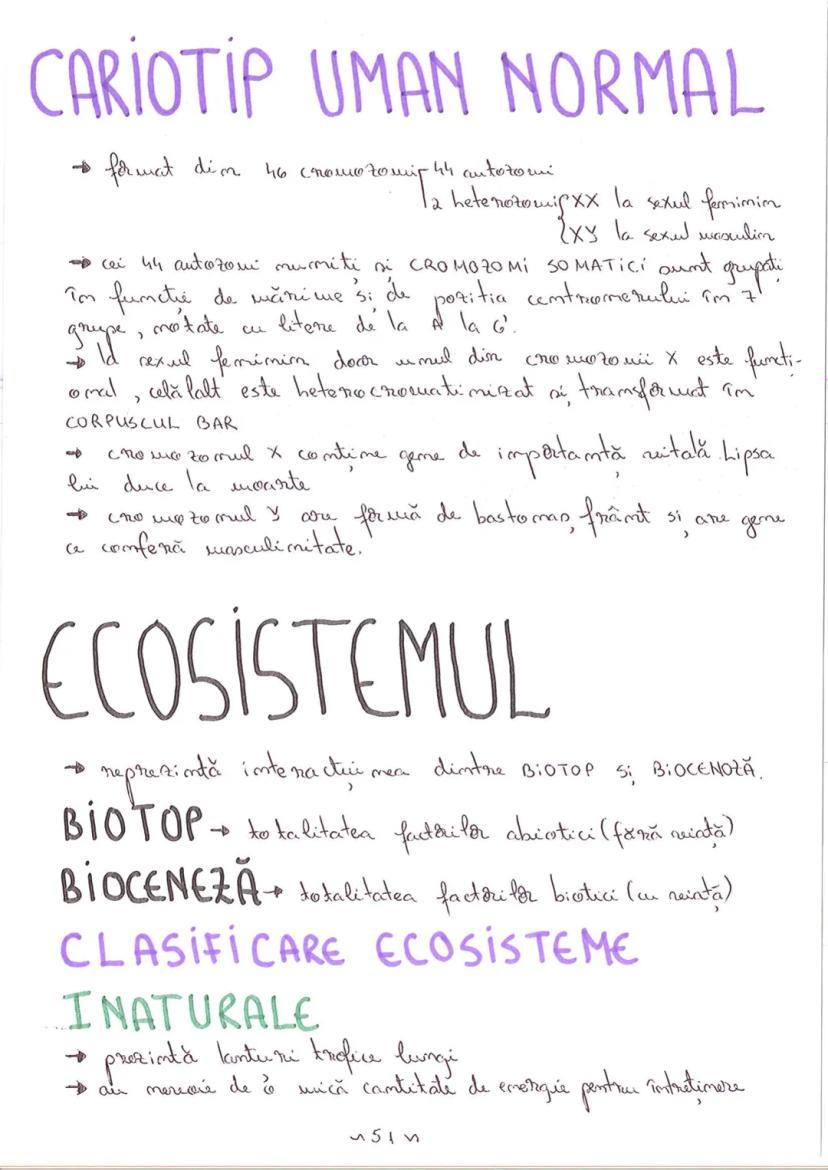 CARIOTIP UMAN NORMAL
→ format din 46 cromozomi 44 autozomi
2 heterozomi XX la sexul feminin
XY la sexul masculin
→ cei 44 autozomi numiți și CROMOZOMI SOMATICI sunt grupați
în funcție de mărime și de poziția centromerului în 7
grupe, notate cu litere de la A la G.
→ la sexul feminin doar unul din cromozomii X este funcți-
onal, celălalt este heterocromatinizat și transformat în
CORPUSCUL BAR
→ cromozomul X conține gene de importanță vitală. Lipsa
lui duce la moarte
→ cromozomul Y are formă de bastonaș frânt și are gene
ce conferă masculinitate.
ECOSISTEMUL
→ reprezintă interacțiunea dintre BIOTOP și BIOCENOZĂ.
BIOTOP → totalitatea factorilor abiotici (fără viață)
BIOCENEZĂ → totalitatea factorilor biotici (cu viață)
CLASIFICARE ECOSISTEME
I NATURALE
→ prezintă lanțuri trofice lungi
→ au nevoie de o mică cantitate de energie pentru întreținere
~51~